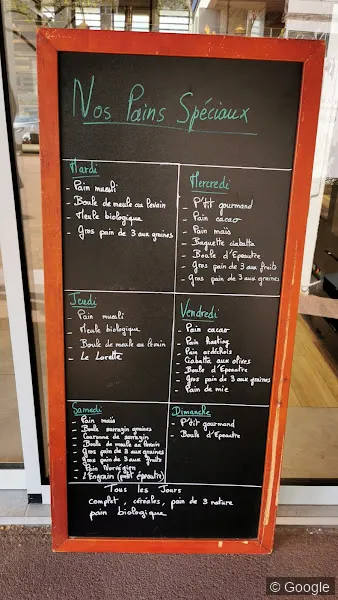 Nos Pains Spéciaux
Mardi
- Pain muesli
- Boule de meule au levain
- Meule biologique
- Gros pain de 3 aux graines
Mercredi
- P'tit gourmand
- Pain cacao
- Pain maïs
- Baguette ciabatta
- Boule d'Epeautre
- Gros pain de 3 aux fruits
- Gros pain de 3 aux graines
Jeudi
- Pain muesli
- Meule biologique
- Boule de meule au levain
- Le Lorette
Vendredi
- Pain cacao
- Pain
- Pain ardéchois
- Ciabatta aux olives
- Boule d'Epeautre
- Gros pain de 3 aux graines
- Pain de mie
Samedi
- Pain maïs
- Boule sarrazin graines
- Couronne de sarrazin
- Boule de meule au levain
- Gros pain de 3 aux graines
- Gros pain de 3 aux fruits
- Pain Norvégien
- L'Engrain (petit épeautre)
Dimanche
- P'tit gourmand
- Boule d'Epeautre
Tous les Jours
complet, céréales, pain de 3 nature
pain biologique
© Google